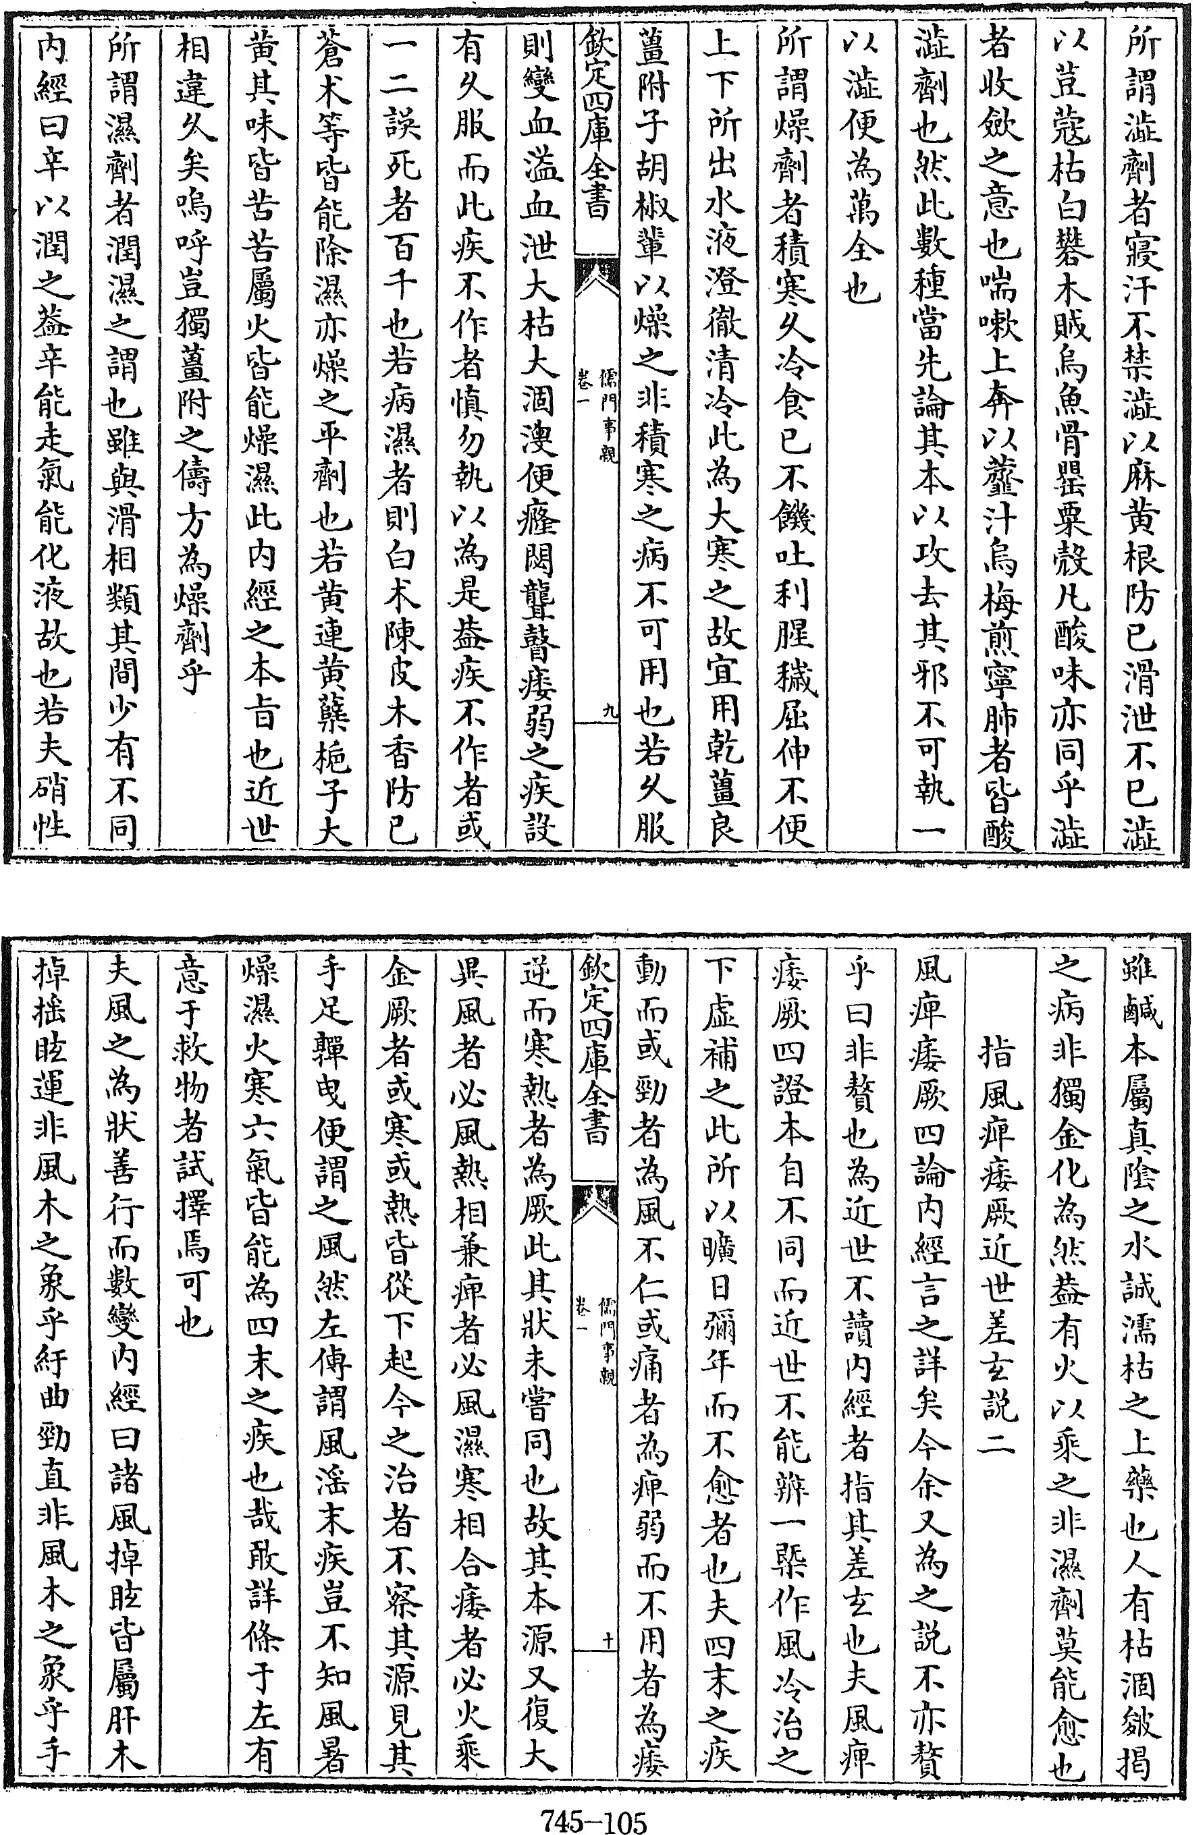 所謂澁劑者寢汗不禁澁以麻黄根防已滑泄不已澁
以荳蔻枯白礬木賊烏魚骨罌粟殻凡酸味亦同乎澁
者收斂之意也喘嗽上奔以虀汁烏梅煎寧肺者皆酸
澁劑也然此數種當先論其本以攻去其邪不可執一
以澁便為萬全也
所謂燥劑者積寒久冷食已不饑吐利腥穢屈伸不便
上下所出水液澄徹清冷此為大寒之故宜用乾薑良
薑附子胡椒輩以燥之非積寒之病不可用也若久服
欽定四庫全書
儒門事親
卷一
九
則變血溢血泄大枯大涸溲便癃閉聾瞽痿弱之疾設
有久服而此疾不作者慎勿執以為是蓋疾不作者或
一二誤死者百千也若病濕者則白术陳皮木香防已
蒼术等皆能除濕亦燥之平劑也若黄連黄蘗梔子大
黄其味皆苦苦屬火皆能燥濕此内經之本旨也近世
相違久矣嗚呼豈獨薑附之儔方為燥劑乎
所謂濕劑者潤濕之謂也雖與滑相類其間少有不同
内經曰辛以潤之蓋辛能走氣能化液故也若夫硝性
雖鹹本屬真陰之水誠濡枯之上藥也人有枯涸皴揭
之病非獨金化為然蓋有火以乘之非濕劑莫能愈也
指風痺痿厥近世差玄説二
風痺痿厥四論内經言之詳矣今余又為之説不亦贅
乎曰非贅也為近世不讀内經者指其差玄也夫風痺
痿厥四證本自不同而近世不能辨一槩作風冷治之
下虛補之此所以曠日彌年而不愈者也夫四末之疾
動而或勁者為風不仁或痛者為痺弱而不用者為痿
欽定四庫全書
儒門事親
卷一
十
逆而寒熱者為厥此其狀未嘗同也故其本源又復大
異風者必風熱相兼痺者必風濕寒相合痿者必火乘
金厥者或寒或熱皆從下起今之治者不察其源見其
手足軃曳便謂之風然左傳謂風淫末疾豈不知風暑
燥濕火寒六氣皆能為四末之疾也哉敢詳條于左有
意于救物者試擇焉可也
夫風之為狀善行而數變内經曰諸風掉眩皆屬肝木
掉揺眩運非風木之象乎紆曲勁直非風木之象乎手
745-105